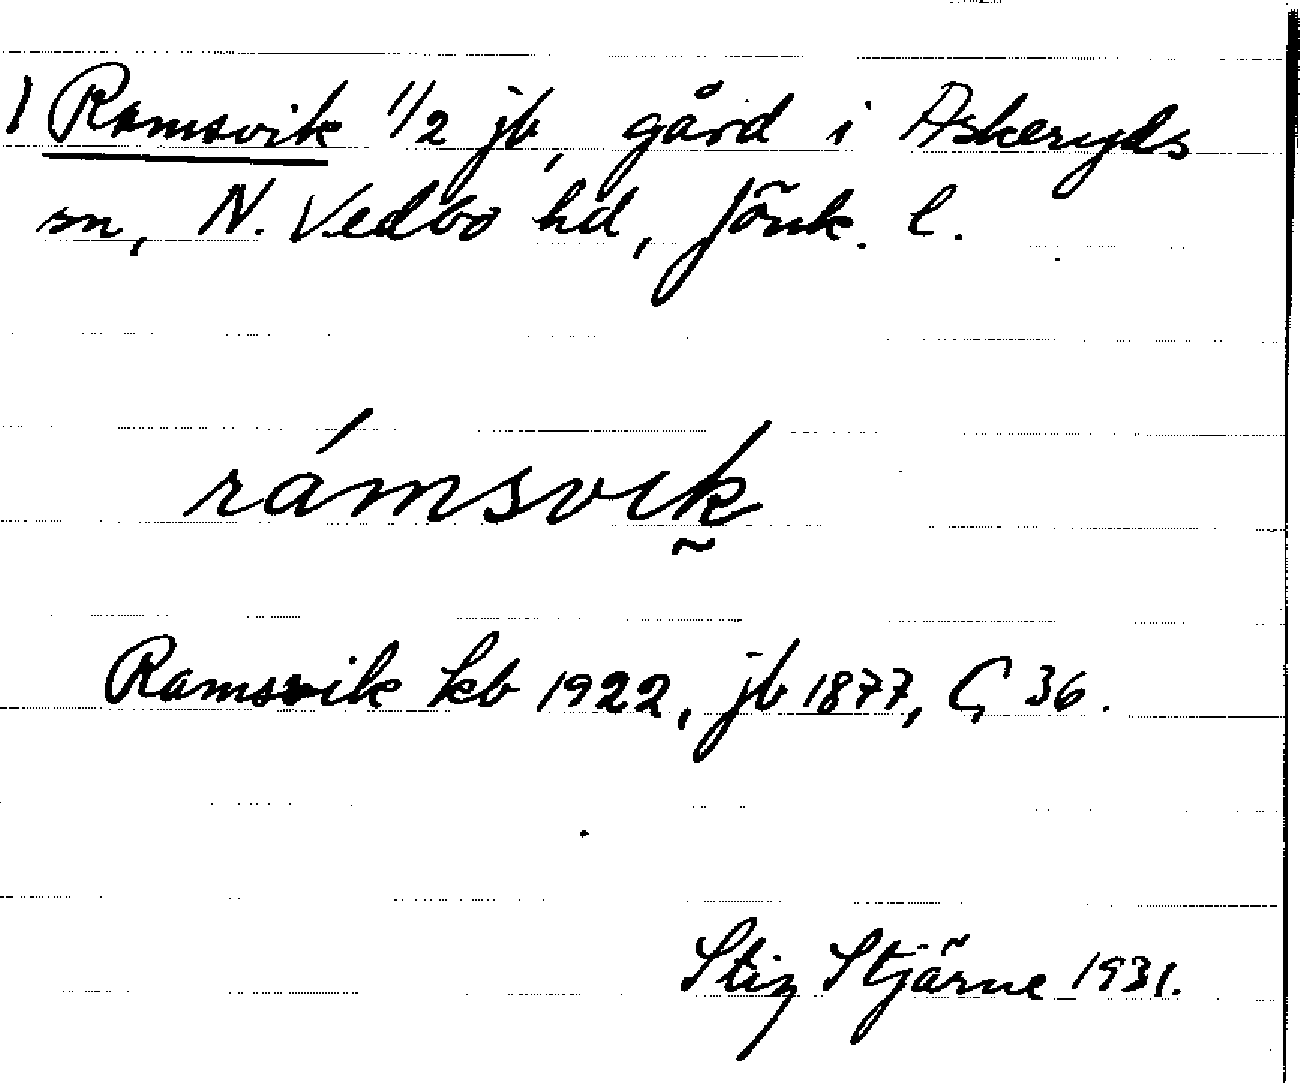 1 Ramsvik 1/2 jb, gård i Askeryds
sn, N. Vedbo hd, Jönk. l.
rámsvik̰
Ramsvik kb 1922, jb 1877, G 36.
Stig Stjärne 1931.